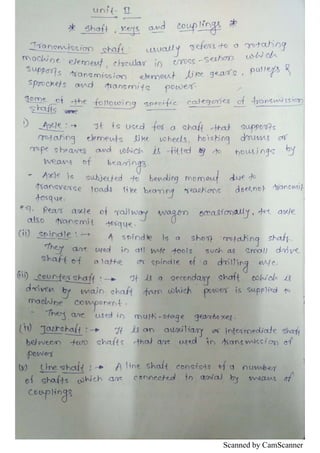 unit- II
* shaft, keys and couplings *
Transmission shaft : usually refers to a rotating
machine element, circular in cross-section which
supports transmission element like gears, pulleys &
sprockets and transmits power.
Some of the following specific categories of transmission
shafts
i) Axle :→ It is used for a shaft that supports
rotating elements like wheels, hoisting drums or
rope sheaves and which is fitted to housings by
means of bearings.
- Axle is subjected to bending moment due to
transverse loads like bearing reactions doesnot transmit
tosque.
e.g. Rear axle of railway wagon occasionally, the axle
also transmit torque.
(ii) spindle :→ A spindle is a short rotating shaft.
They are used in all m/c tools such as small drive
shaft of a lathe or spindle of a drilling m/c.
(iii) counter shaft :→ It is a secondary shaft which is
driven by main shaft from which power is supplied to
machine component.
- They are used in multi-stage gearboxes.
(iv) Jackshaft :→ It is an auxiliary or intermediate shaft
between two shafts that are used in transmission of
power
(v) Line shaft : → A line shaft consists of a number
of shafts which are connected in axial by means of
couplings
Scanned by CamScanner